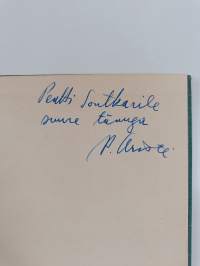 Pentti Soutkarile
suure tänuga
P. Ariste.